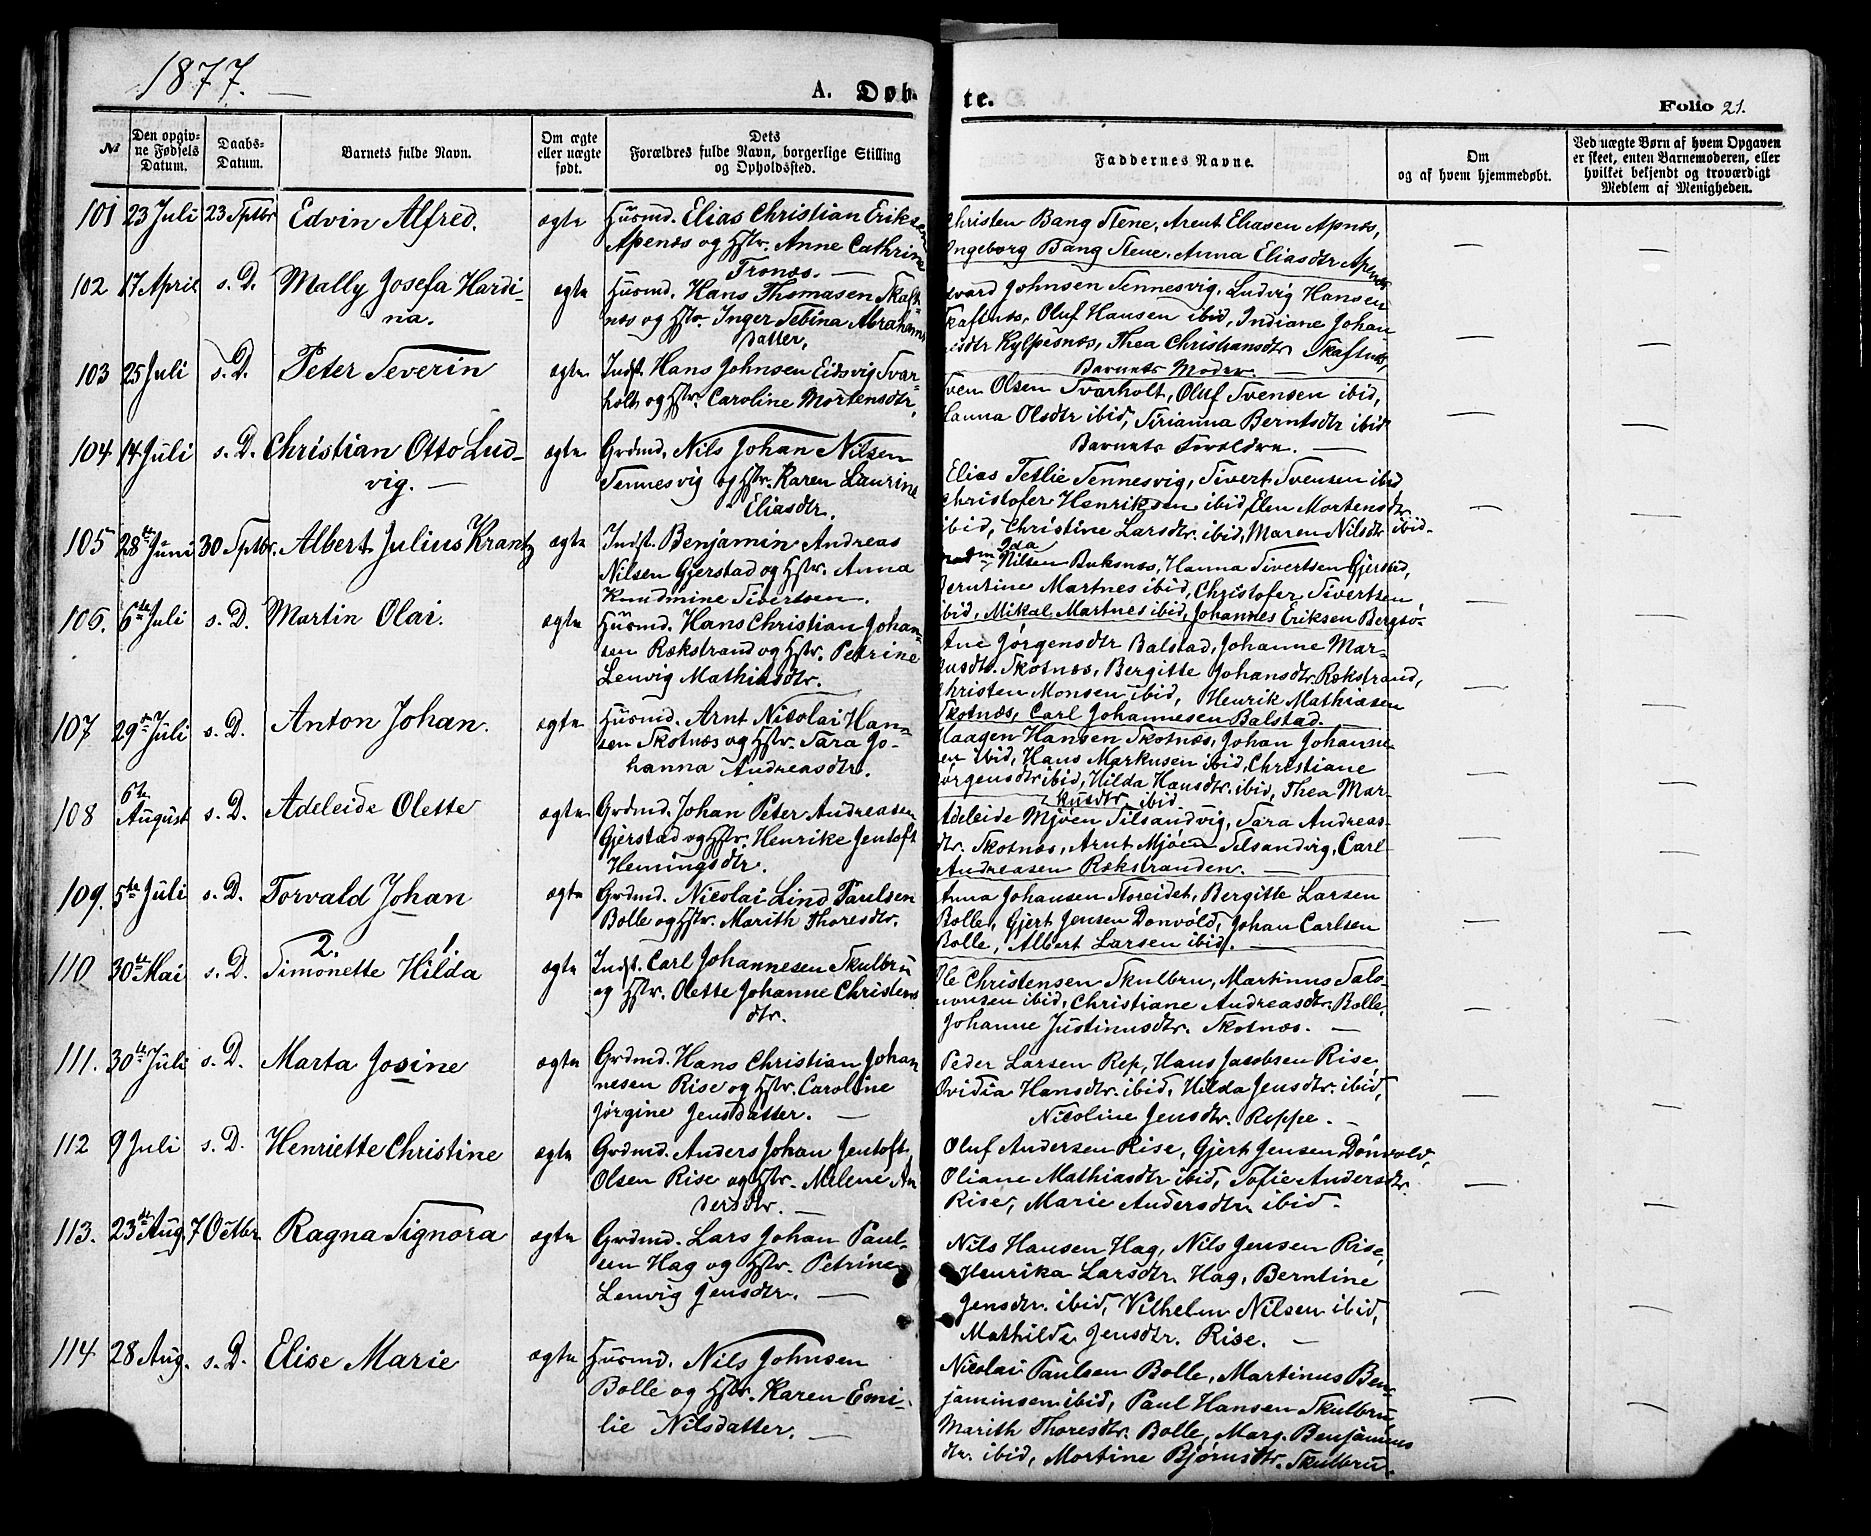 1877.
A. Døb-
te.
Folio 21.
№
Den opgiv-
ne Fødsels
Datum.
Daabs-
Datum.
Barnets fulde Navn.
Om ægte
eller uægte
født.
Dets
Forældres fulde Navn, borgerlige Stilling
og Opholdssted.
Faddernes Navne.
Om
og af hvem hjemmedøbt.
Ved uægte Børn af hvem Opgaven
er skeet, enten Barnemoderen, eller
hvilket bekjendt og troværdigt
Medlem af Menigheden.
101 23 Juli 23 Sptbr Edvin Alfred. ægte Husmd. Elias Christian Eriksen
Apenæs og Hstr. Anne Cathrine
Tronæs. —
Christen Bang Stene, Arent Eliasen Apnæs,
Ingeborg Bang Stene, Anna Eliasdtr Apenæs
102 17 April s. D. Mally Josefa Hardi-
na.
ægte Husmd. Hans Thomasen Skaft-
næs og Hstr. Inger Sebina Abrahams
datter,
Edvard Johnsen Sennesvig, Ludvig Hansen
Skaftnæs, Oluf Hansen ibid, Indiane Johan
nesdtr Kylpesnæs, Thea Christiansdtr Skaftnæs,
Barnets Moder. —
103 25 Juli s. D. Peter Severin ægte Indst. Hans Johnsen Eidsvig Svar-
holt og Hstr. Caroline Mortensdtr,
Sven Olsen Svarholt, Oluf Svensen ibid,
Hanna Olsdtr ibid, Sirianna Berntsdtr ibid
Barnets Forældre. —
104 14 Juli s. D. Christian Otto Lud-
vig. —
ægte Grdmd. Nils Johan Nilsen
Sennesvig og Hstr. Karen Laurine
Eliasdtr.
Elias Tetlie Sennesvig, Sivert Svensen ibid
Christofer Henriksen ibid, Elen Mortensdtr
ibid, Christine Larsdtr. ibid, Maren Nilsdtr ibid-
105 28de Juni 30 Sptbr. Albert Julius Krantz ægte Indst. Benjamin Andreas
Nilsen Gjerstad og Hstr. Anna
Knudmine Sivertsen.
Ida
Nilsen Buksnæs, Hanna Sivertsen Gjerstad,
Berntine Martnes ibid, Christofer Sivertsen
ibid, Mikal Martnes ibid, Johannes Eriksen Bergsö-
106. 6te Juli s. D. Martin Olai. ægte Husmd. Hans Christian Johan-
sen Rækstrand og Hstr. Petrine
Lenvig Mathiasdtr.
Ane Jörgensdtr Balstad, Johanne Mar-
kusdtr. Skotnæs, Bergitte Johansdtr. Rækstrand,
Christen Monsen ibid, Henrik Mathiasen
Skotnæs, Carl Johannesen Balstad.
107 29de Juli s. D. Anton Johan. ægte Husmd. Arnt Nicolai Han-
sen Skotnæs og Hstr. Sara Jo-
hanna Andreasdtr.
Haagen Hansen Skotnæs, Johan Johanne-
sen ibid, Hans Markusen ibid, Christiane
Jörgensdtr ibid, Hilda Hansdtr. ibid, Thea Mar-
kusdtr. ibid
108 6te August s. D. Adeleide Olette ægte Grdmd. Johan Peter Andreasen
Gjerstad og Hstr. Henrike Jentoft
Hemingsdtr.
Adeleide Mjöen Silsandvig, Sara Andreas-
dtr. Skotnæs, Arnt Mjöen Silsandvig, Carl
Andreasen Rækstranden. —
109. 5te Juli s. D. Torvald Johan ægte Grdmd. Nicolai Lind Paulsen
Bolle og Hstr. Marith Thoresdtr.
Anna Johansen Storeidet, Bergitte Larsen
Bolle, Gjert Jensen Donvöld, Johan Carlsen
Bolle, Albert Larsen ibid. —
110 30te Mai s. D. 2. Simonette 1. Hilda ægte Indst. Carl Johannesen Skulbru
og Hstr. Olette Johanne Christens
dtr.
Ole Christensen Skulbru, Martinus Salo-
monsen ibid, Christiane Andreasdtr. Bolle,
Johanne Justinusdtr. Skotnæs. —
111. 30te Juli s. D. Marta Josine ægte Grdmd. Hans Christian Johan
nesen Rise og Hstr. Caroline
Jørgine Jensdatter. —
Peder Larsen Rep, Hans Jacobsen Rise,
Ovidia Hansdtr. ibid, Hilda Jensdtr. ibid,
Nicoline Jensdtr. Reppe. —
112 9 Juli s. D. Henriette Christine ægte Grdmd. Anders Johan Jentoft
Olsen Rise og Hstr. Milene An
dersdtr. —
Oluf Andersen Rise, Gjert Jensen Dönvold,
Oliane Mathiasdtr ibid, Sofie Andersdtr.
Rise, Marie Andersdtr. ibid.
113. 23de Aug. 7 Octbr. Ragna Signora ægte Grdmd. Lars Johan Paul-
sen Hag og Hstr. Petrine
Lenvig Jensdtr. —
Nils Hansen Hag, Nils Jensen Rise,
Henrika Larsdtr. Hag, Berntine
Jensdtr. ibid, Vilhelm Nilsen ibid,
Mathilde Jensdtr. Rise. —
114 28 Aug. s. D. Elise Marie ægte Husmd. Nils Johnsen
Bolle og Hstr. Karen Emi-
lie Nilsdatter. —
Nicolai Paulsen Bolle, Martinus Ben-
jaminsen ibid, Paul Hansen Skulbru,
Marith Thoresdtr. Bolle, Marg. Benjamins
dtr. ibid, Mortine Bjørnsdtr. Skulbru.